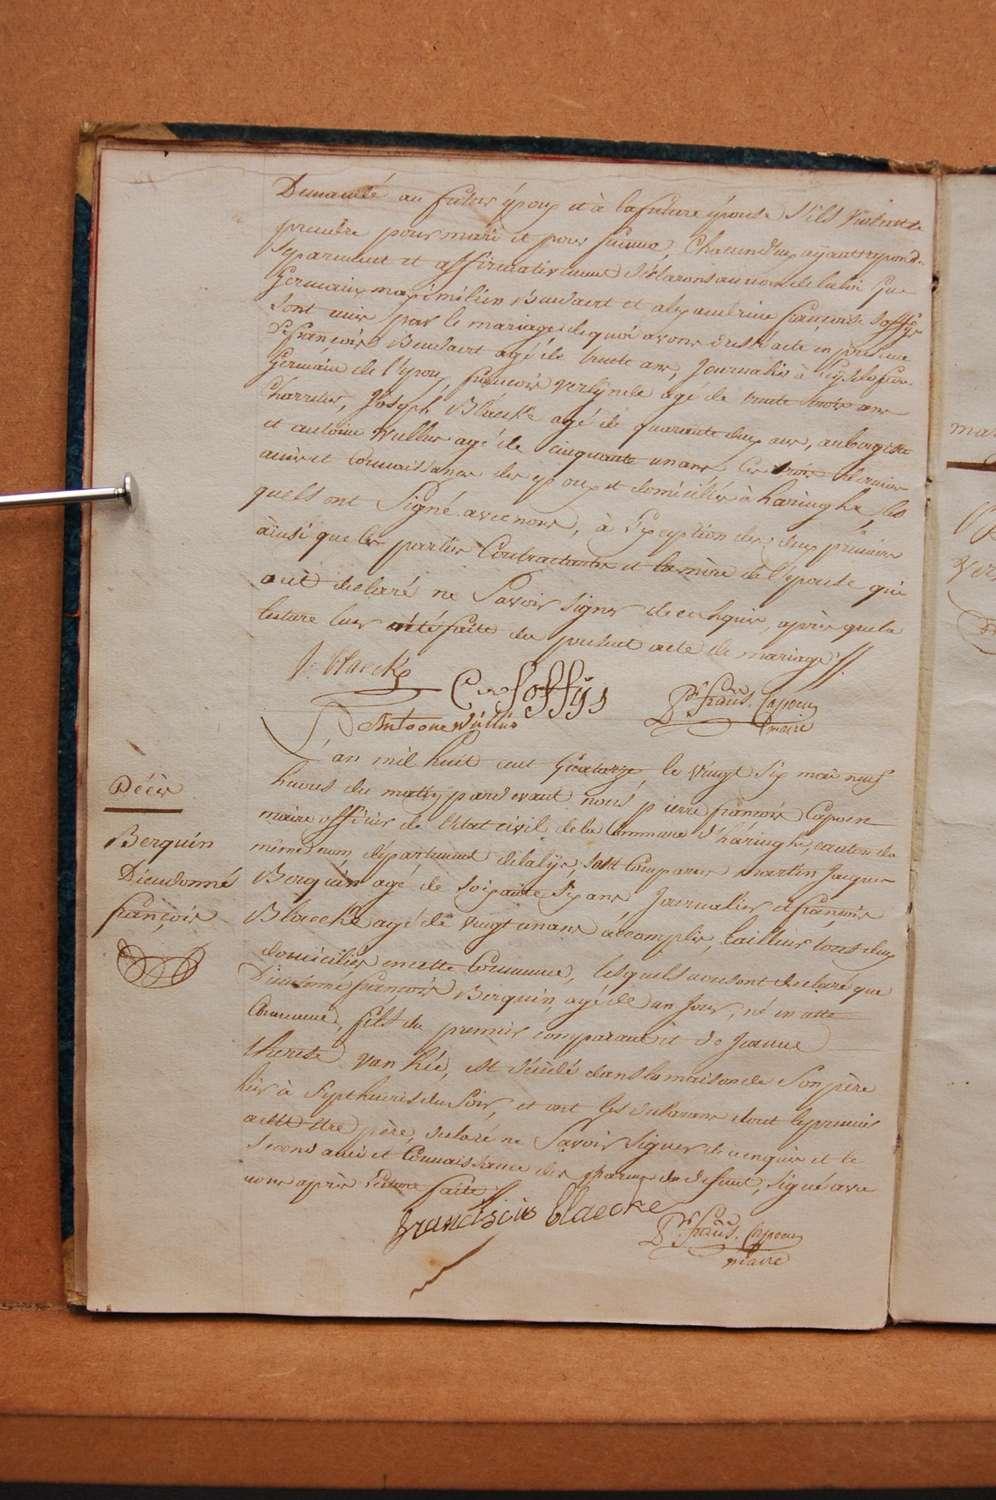 Demandé au futur époux et à la future épouse s'ils veulent se
prendre pour mari et pour femme, chacun d'eux ayant repond.
séparement et affirmativement déclarons au nom de la loi que
Germain maximilien Beudaert et alexandrine françoise Soffys
sont unis par le mariage de quoi avons dressé acte en présence
De françois Beudaert agé de trente ans, Journalier à
Germain de l'epoux, francois verlynde agé de trente trois ans
Charretier, Joseph Blaecke agé de quarante deux ans, aubergiste
et antoine Wullus agé de cinquante un ans les trois derniers
amis et connaissances des époux et domiciliés à haringhe, les
quels ont signé avec nous, à l'exception des deux premiers
ainsi que les parties Contractantes et la mère de l'épouse qui
ont declaré ne Savoir signer de ce enquis, après que la
lecture leur a été faite du présent acte de mariage
J. Blaecke
C. Soffys
Antoone Wullus
P.re frans. Capoen
maire
Décès
Berquin
Dieudonné
françois
L'an mil huit cent Quatorze, le vingt six mai neuf
heures du matin pardevant nous pierre francois Capoen
maire officier de l'état civil de la Commune d'haringhe, canton du
même nom, département de la lys, sont comparus Martin Jacques
Berquin agé de soixante six ans Journalier et françois
Blaecke agé de vingt un ans accomplis, tailleur tous deux
domiciliés en cette Commune, lesquels nous ont declaré que
Dieudonné françois Berquin, agé de un Jour, né en cette
Commune, fils du premier comparant et de Jeanne
therese van hie, est décédé dans la maison de Son père
hier à Sept heures du Soir, et ont les declarans dont le premier
a dit être père, declaré ne Savoir signer de ce enquis et le
second ami et Connaissance des parens du defunt, signé avec
nous après lecture faite
Franciscus Blaecke
P.re frans. Capoen
maire